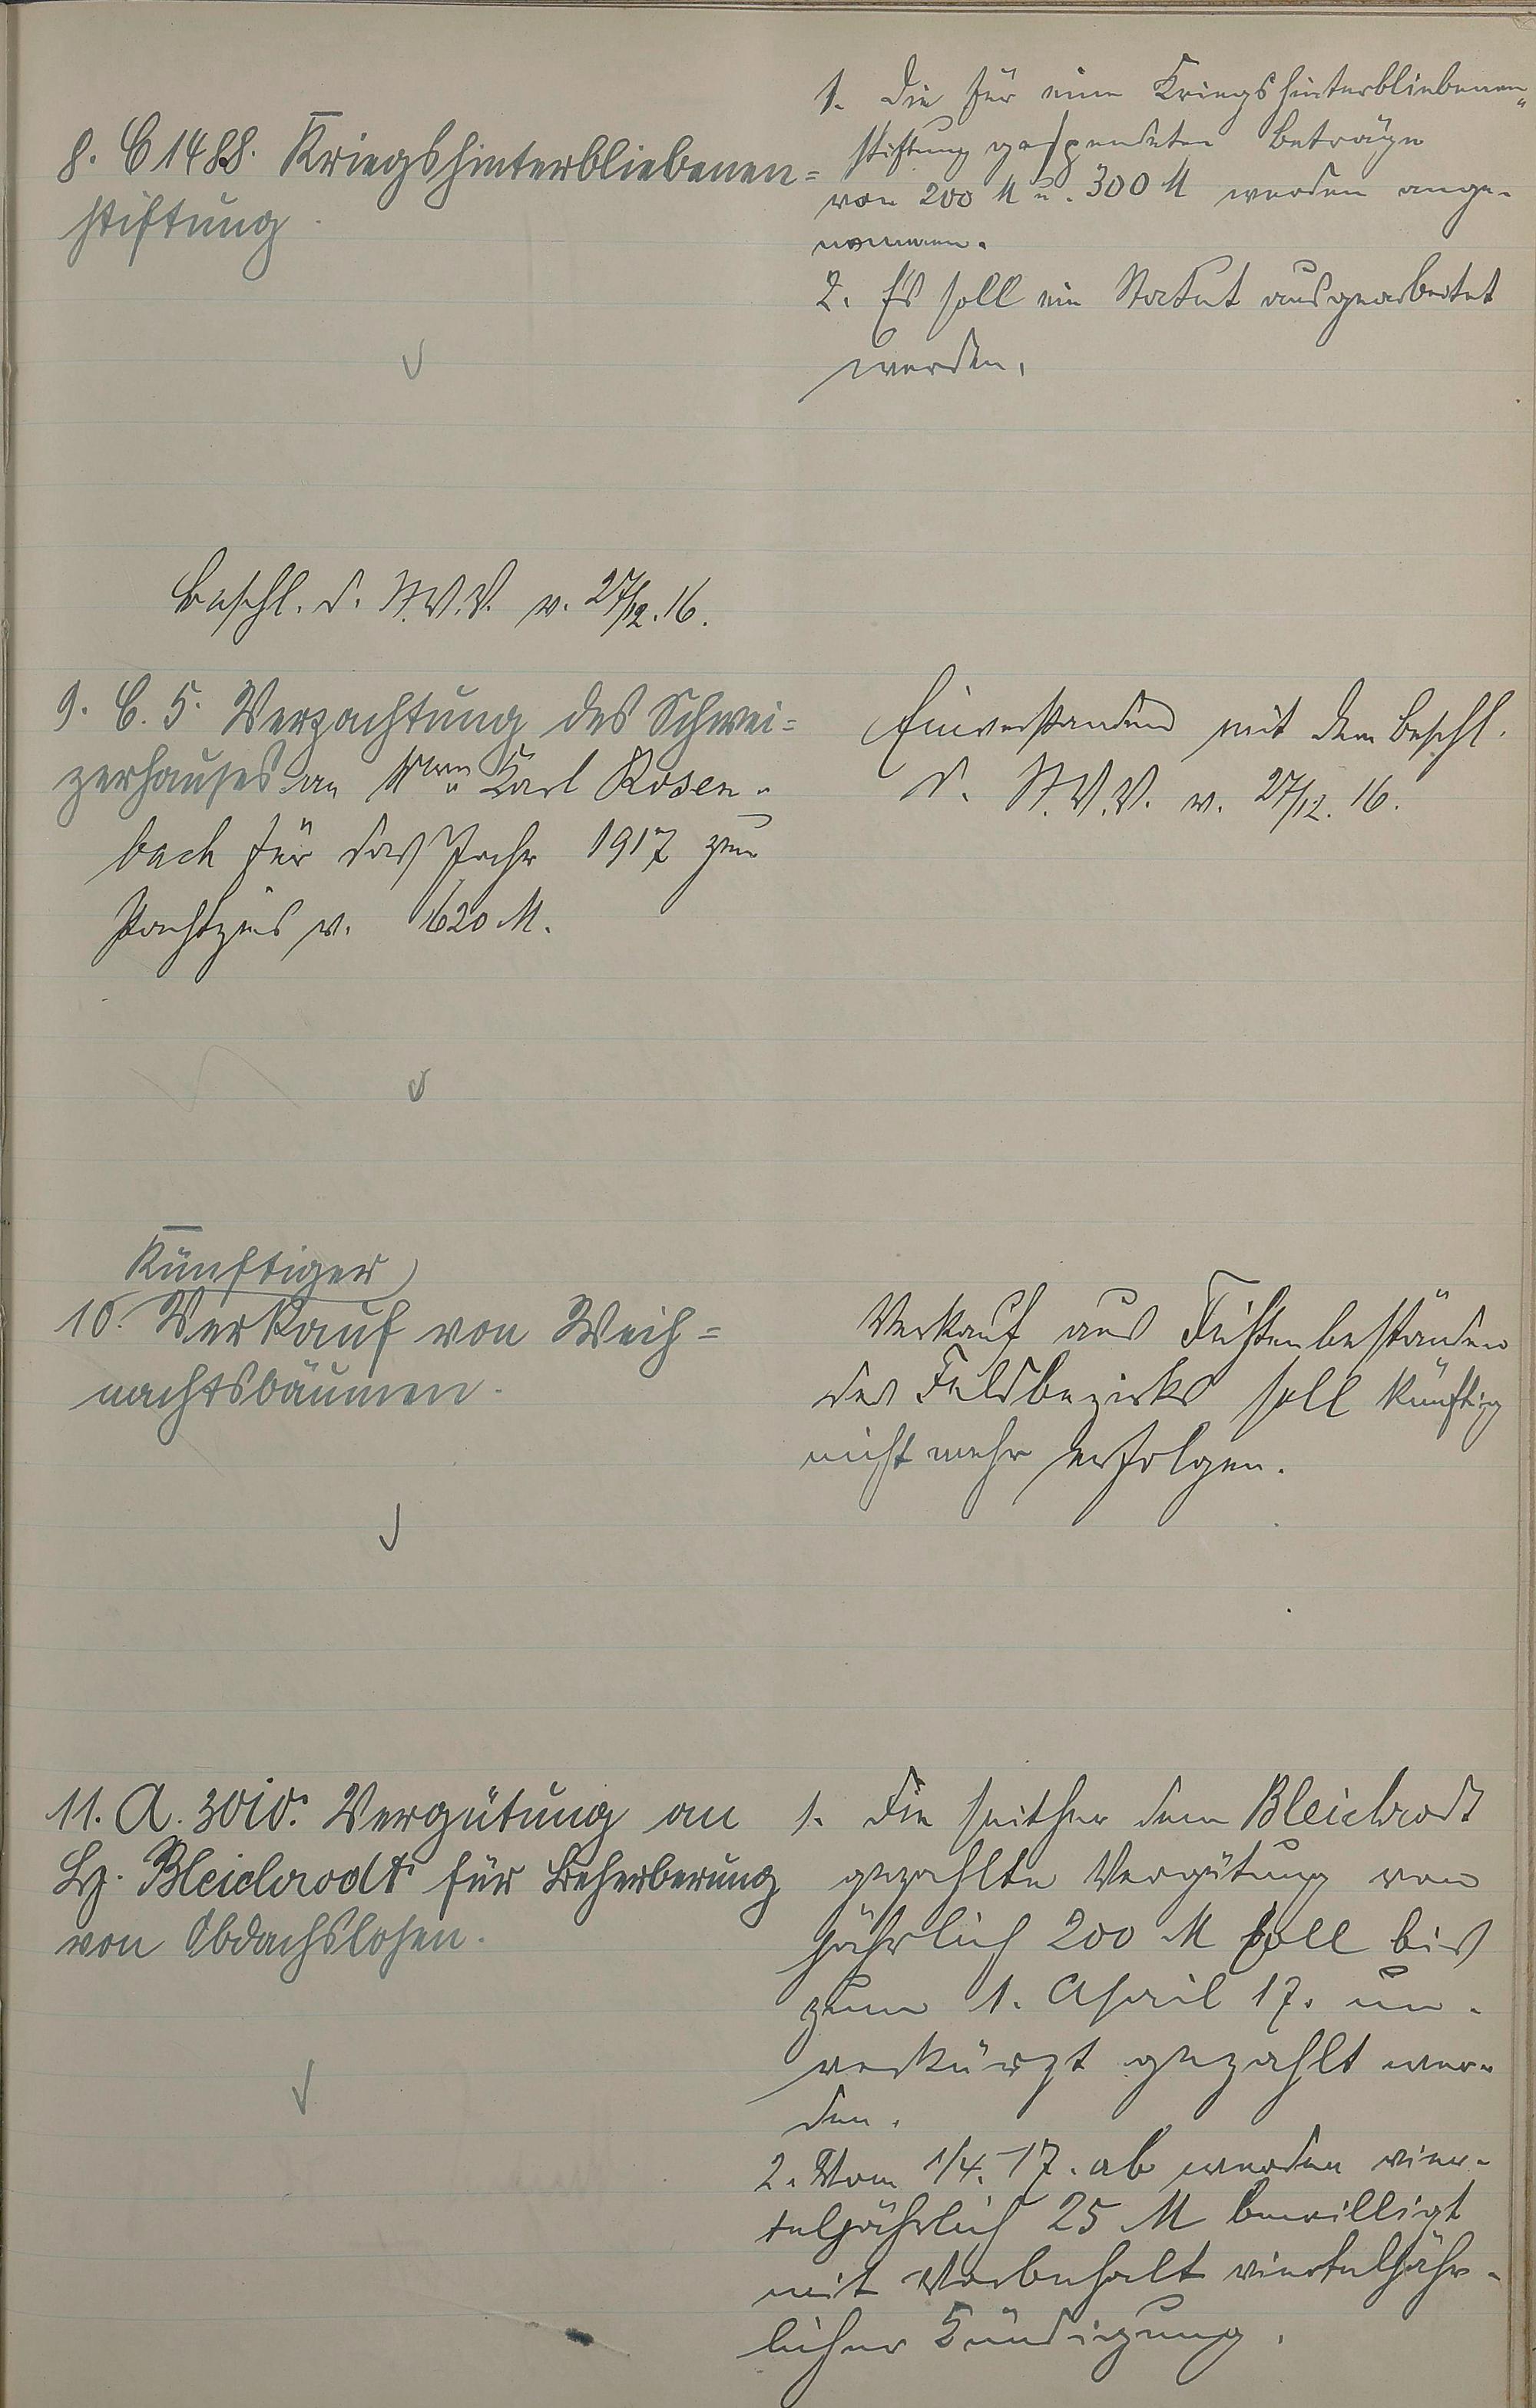 8. C 1488. Kriegshinterbliebenen=
stiftung.
1. Die für eine Kriegshinterbliebenen-
stiftung gespendeten Beträge
von 200 M u. 300 M werden ange-
nommen.
2. Es soll ein Statut ausgearbeitet
werden.
Beschl. d. St.V.V. v. 27/12. 16.
9. C. 5. Verpachtung des Schwei=
zerhauses an Karl Rosen-
bach für das Jahr 1917 zum
Pachtzins v. 1620 M.
Einverstanden mit dem Beschl.
d. St.V.V. v. 27/12. 16.
Künftiger
10. Verkauf von Weih=
nachtsbäumen.
Verkauf aus Fichtenbeständen
des Feldbezirks soll künftig
nicht mehr erfolgen.
11. A. 3010. Vergütung an
Hch. Bleichrodt für Beherberung
von Obdachslosen.
1. Die seither dem Bleichrodt
gezahlte Vergütung von
jährlich 200 M soll bis
zum 1. April 17. un-
verkürzt gezahlt wer-
den.
2. Vom 1/4. 17. ab werden vier-
teljährlich 25 M bewilligt
mit Vorbehalt vierteljähr-
licher Kündigung.